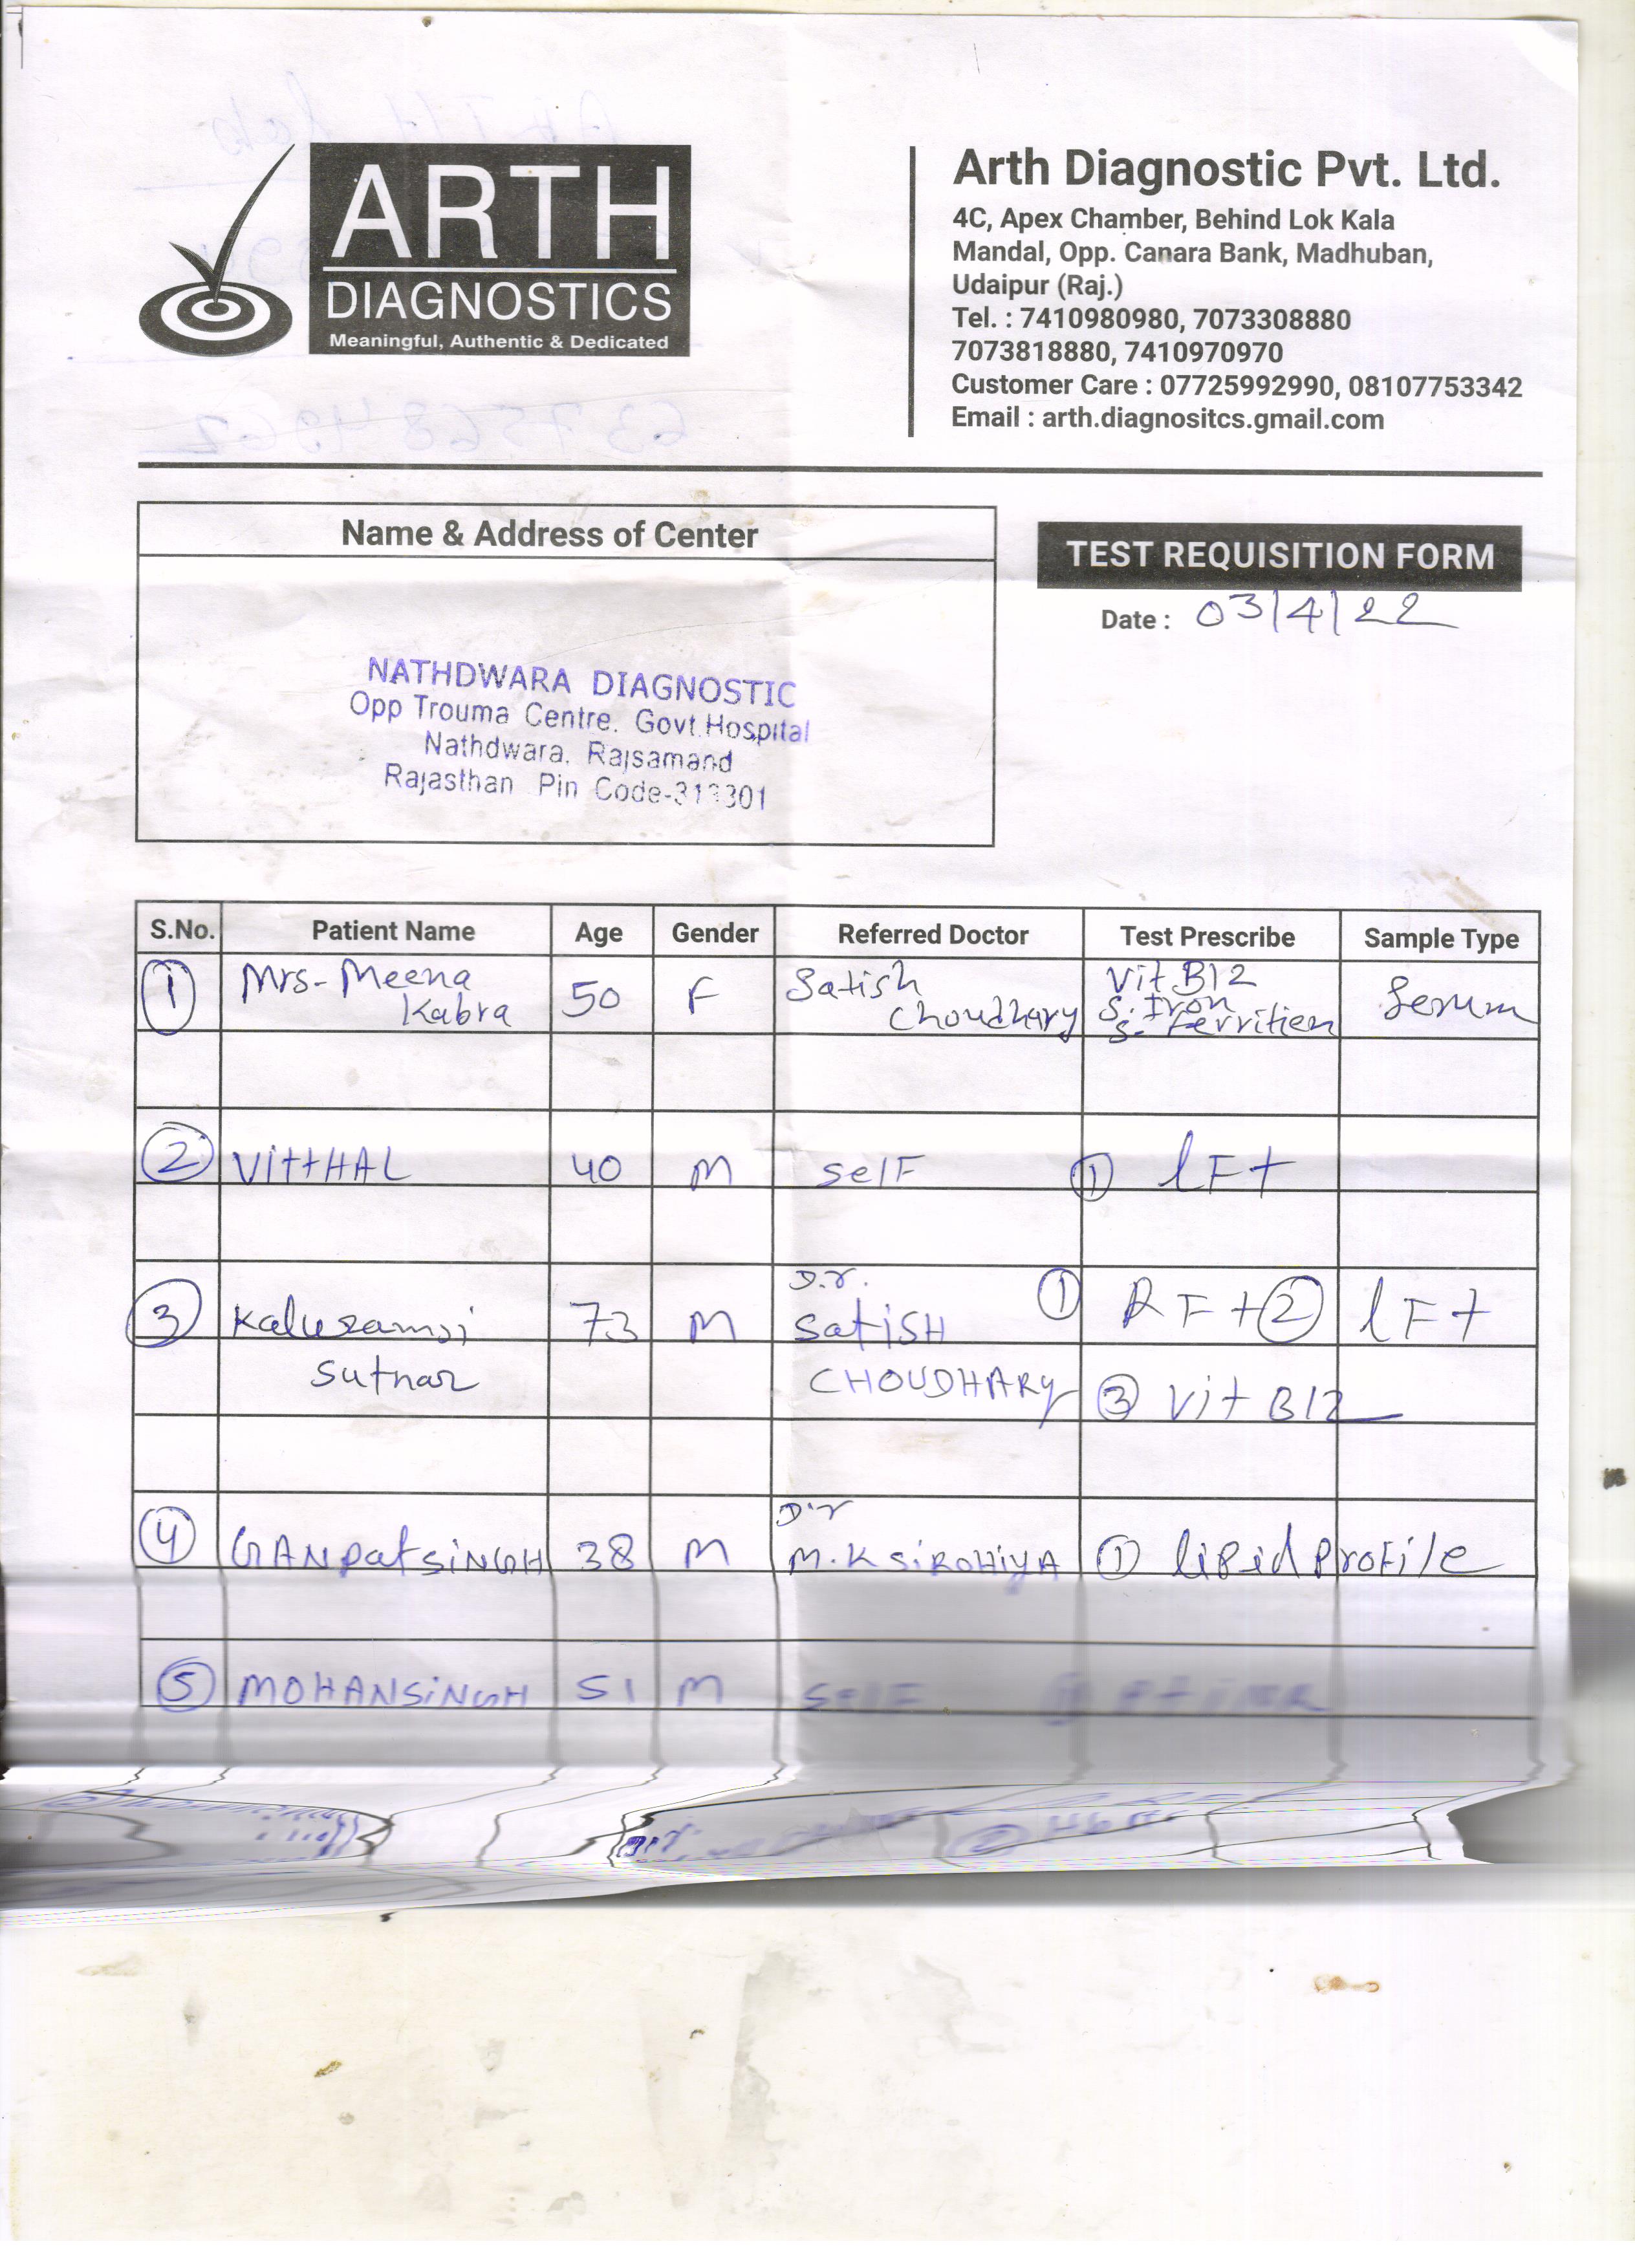 ARTH
DIAGNOSTICS
Meaningful, Authentic & Dedicated
Arth Diagnostic Pvt. Ltd.
4C, Apex Chamber, Behind Lok Kala
Mandal, Opp. Canara Bank, Madhuban,
Udaipur (Raj.)
Tel. : 7410980980, 7073308880
7073818880, 7410970970
Customer Care : 07725992990, 08107753342
Email : arth.diagnositcs.gmail.com
Name & Address of Center
NATHDWARA DIAGNOSTIC
Opp Trouma Centre. Govt.Hospital
Nathdwara. Rajsamand
Rajasthan Pin Code-313301
TEST REQUISITION FORM
Date : 03/4/22
S.No. Patient Name Age Gender Referred Doctor Test Prescribe Sample Type
1 Mrs- Meena Kabra 50 F Satish Choudhary Vit B12 S. Iron S. Ferritien Serum
2 VittHAL 40 M self 1 lFt
3 Kaluramji Suthar 73 M D.r. SatiSH CHOUDHARy 1 RFt 2 lFt 3 Vit B12
4 GANpatSiNGH 38 M D.r M.K SiROHiyA 1 lipid Profile
5 MOHANSiNGH 51 M self